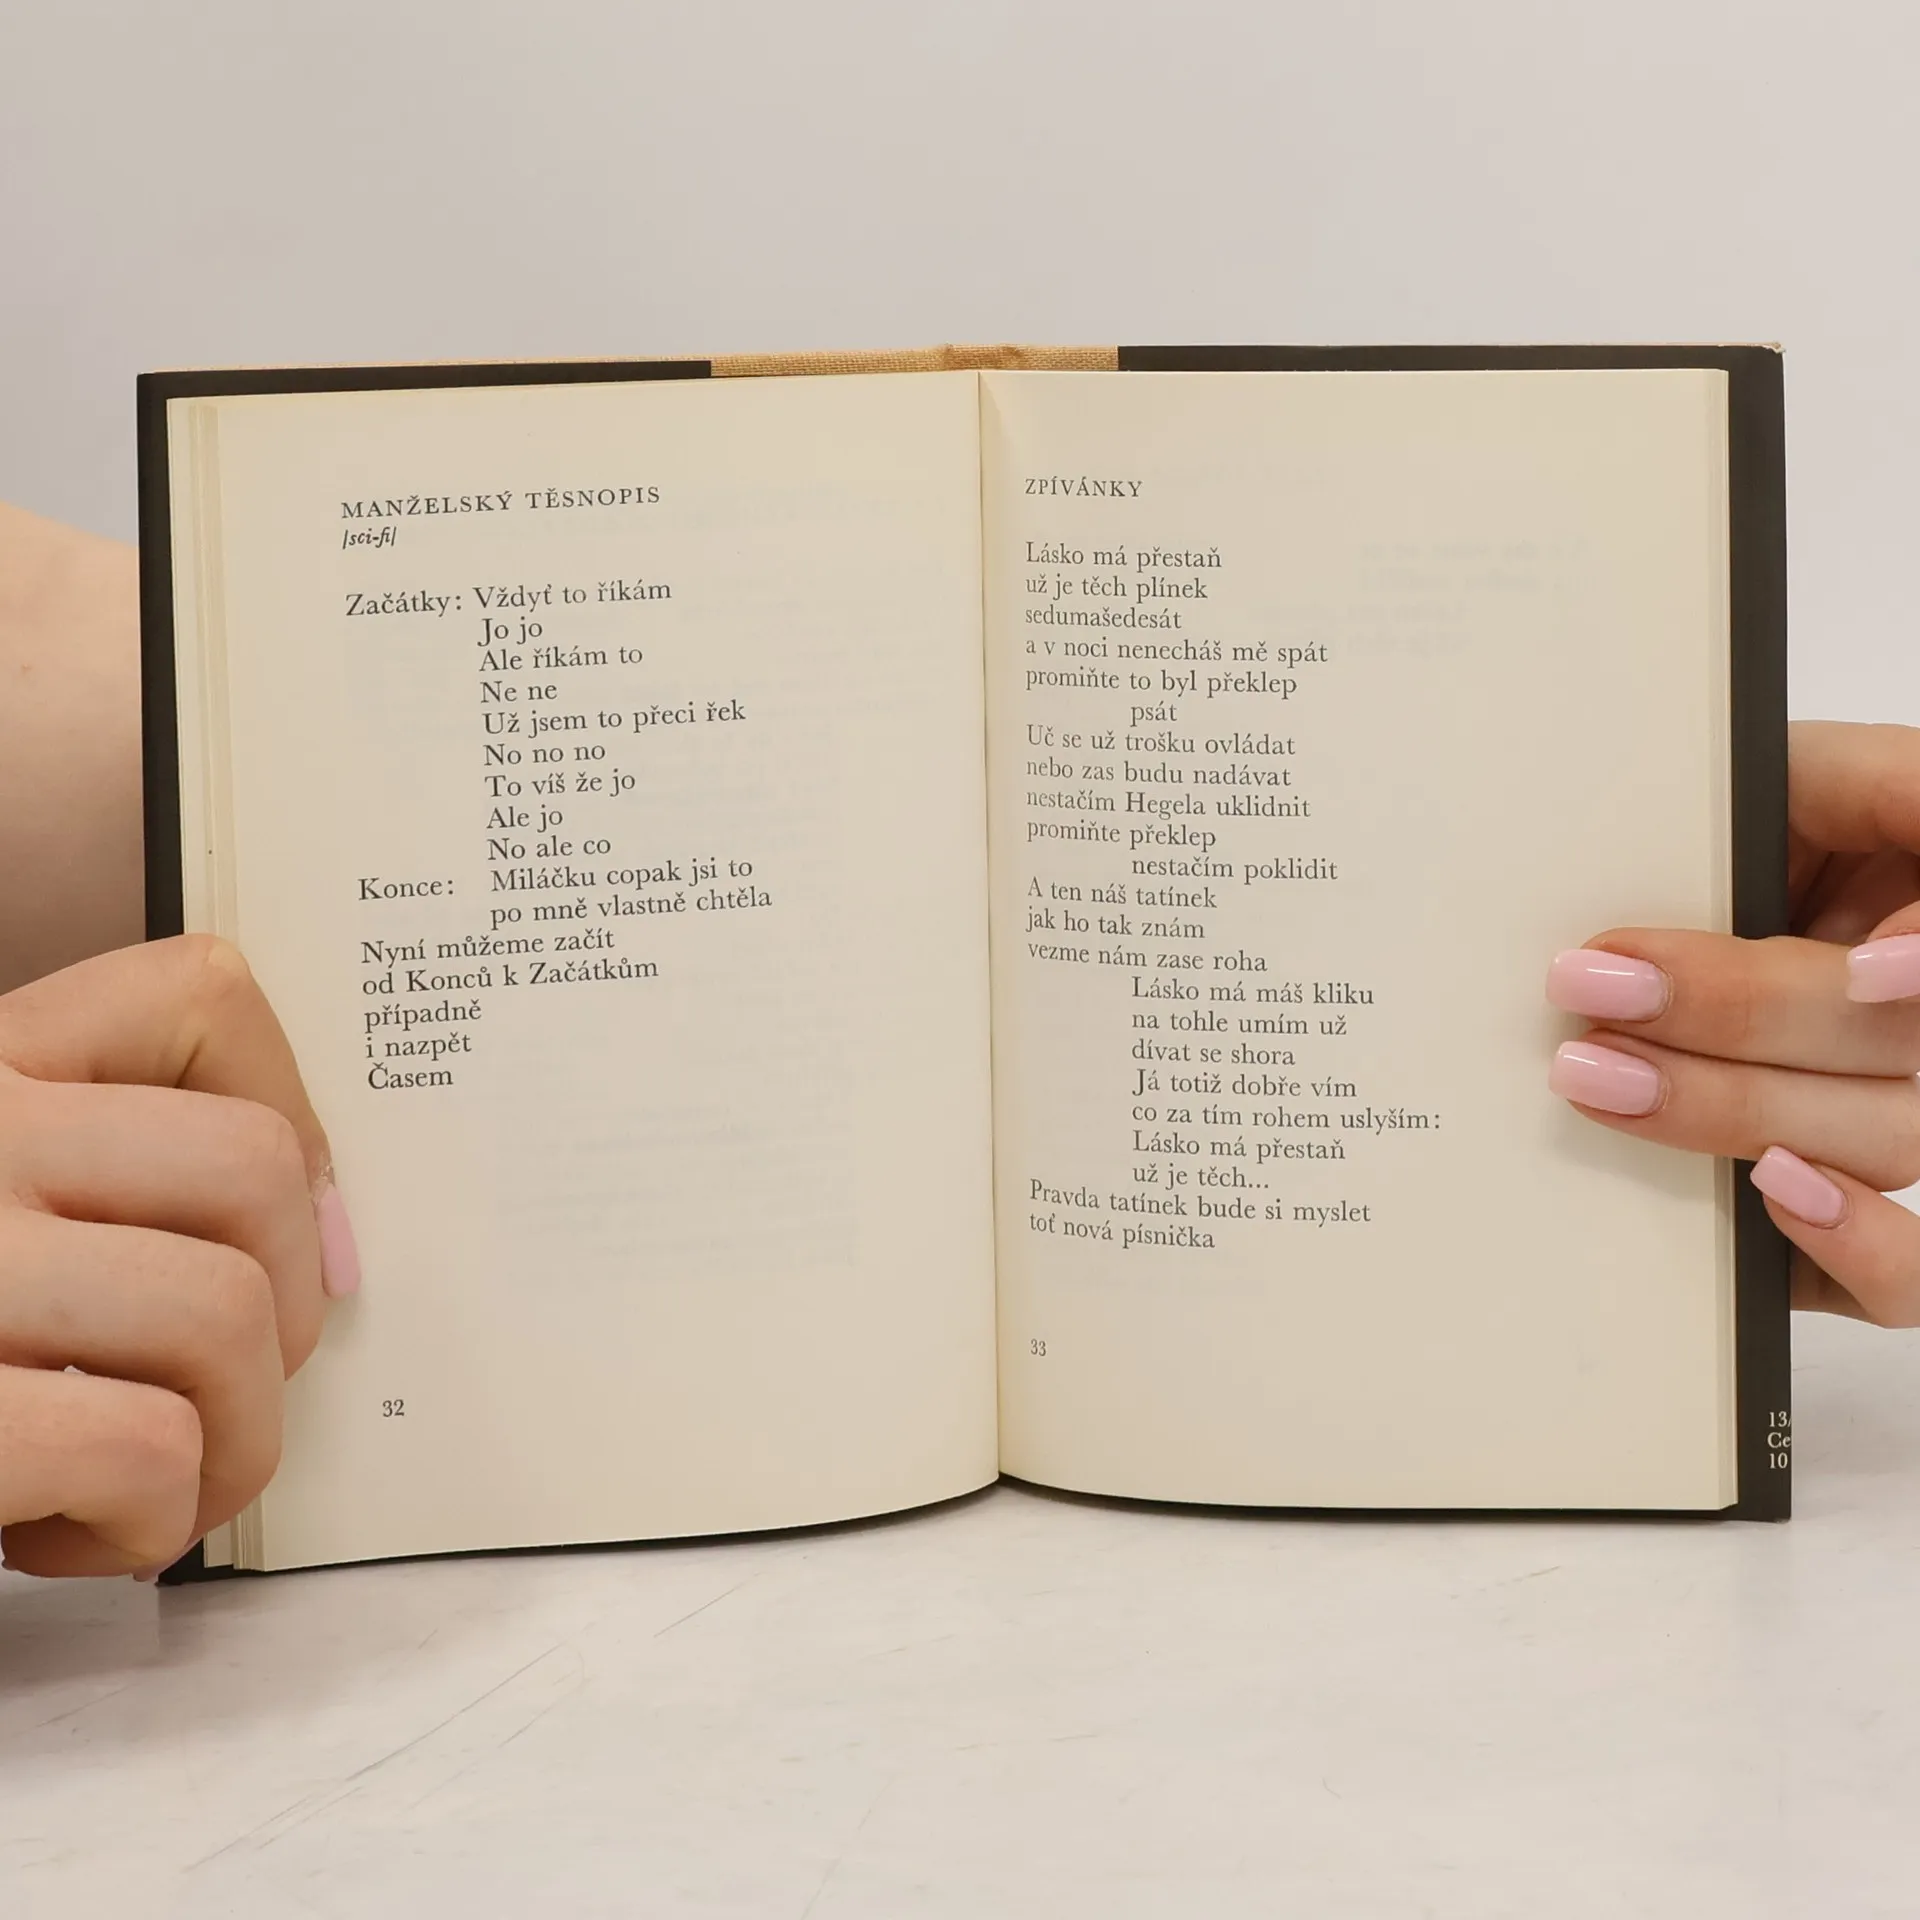 MANŽELSKÝ TĚSNOPIS
/sci-fi/
Začátky: Vždyť to říkám
Jo jo
Ale říkám to
Ne ne
Už jsem to přeci řek
No no no
To víš že jo
Ale jo
No ale co
Konce: Miláčku copak jsi to
po mně vlastně chtěla
Nyní můžeme začít
od Konců k Začátkům
případně
i nazpět
Časem
32
ZPÍVÁNKY
Lásko má přestaň
už je těch plínek
sedumašedesát
a v noci nenecháš mě spát
promiňte to byl překlep
psát
Uč se už trošku ovládat
nebo zas budu nadávat
nestačím Hegela uklidnit
promiňte překlep
nestačím poklidit
A ten náš tatínek
jak ho tak znám
vezme nám zase roha
Lásko má máš kliku
na tohle umím už
dívat se shora
Já totiž dobře vím
co za tím rohem uslyším:
Lásko má přestaň
už je těch...
Pravda tatínek bude si myslet
toť nová písnička
33
13/
Ce
10